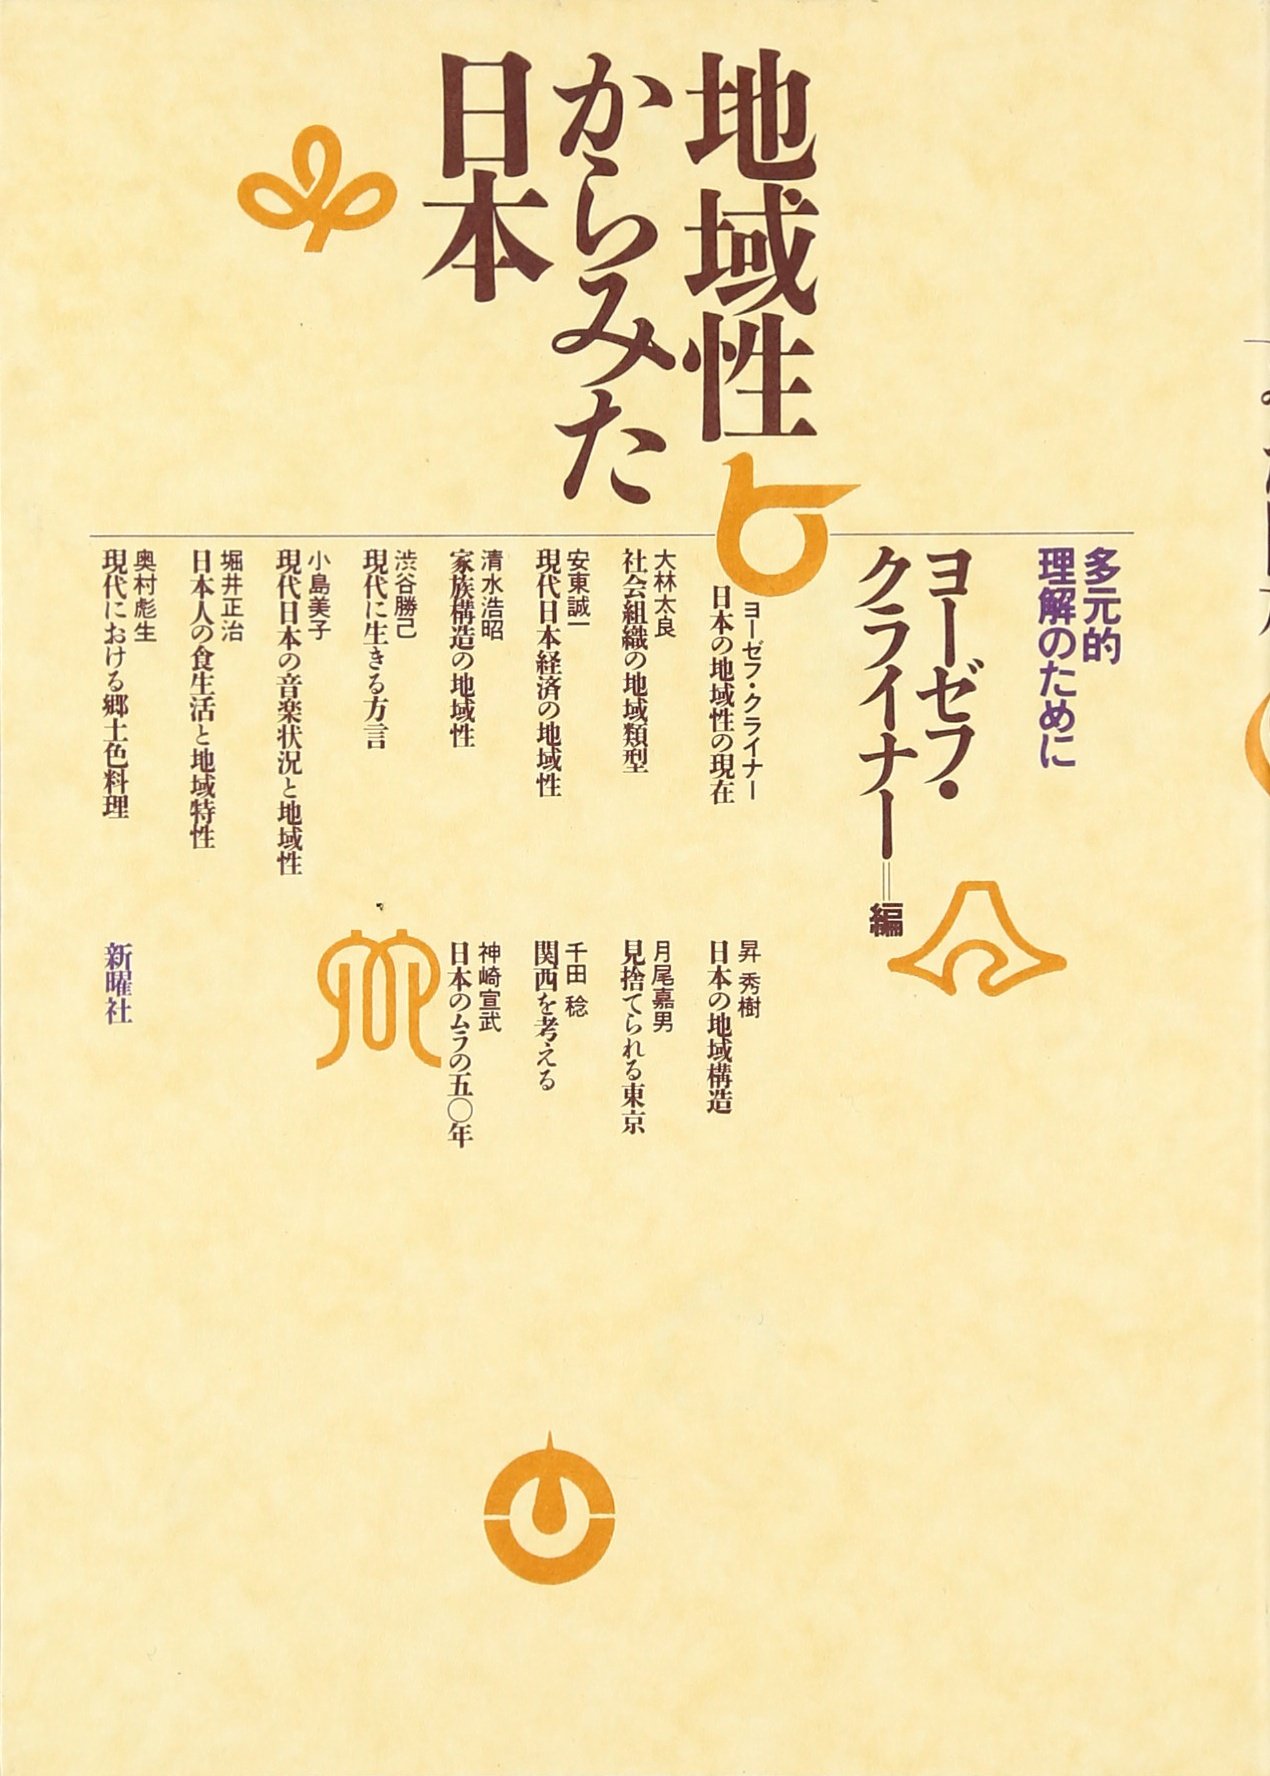 地域性
からみた
日本
多元的
理解のために
ヨーゼフ・
クライナー=編
ヨーゼフ・クライナー
日本の地域性の現在
大林太良
社会組織の地域類型
安東誠一
現代日本経済の地域性
清水浩昭
家族構造の地域性
渋谷勝己
現代に生きる方言
小島美子
現代日本の音楽状況と地域性
堀井正治
日本人の食生活と地域特性
奥村彪生
現代における郷土色料理
昇 秀樹
日本の地域構造
月尾嘉男
見捨てられる東京
千田 稔
関西を考える
神崎宣武
日本のムラの五〇年
新曜社